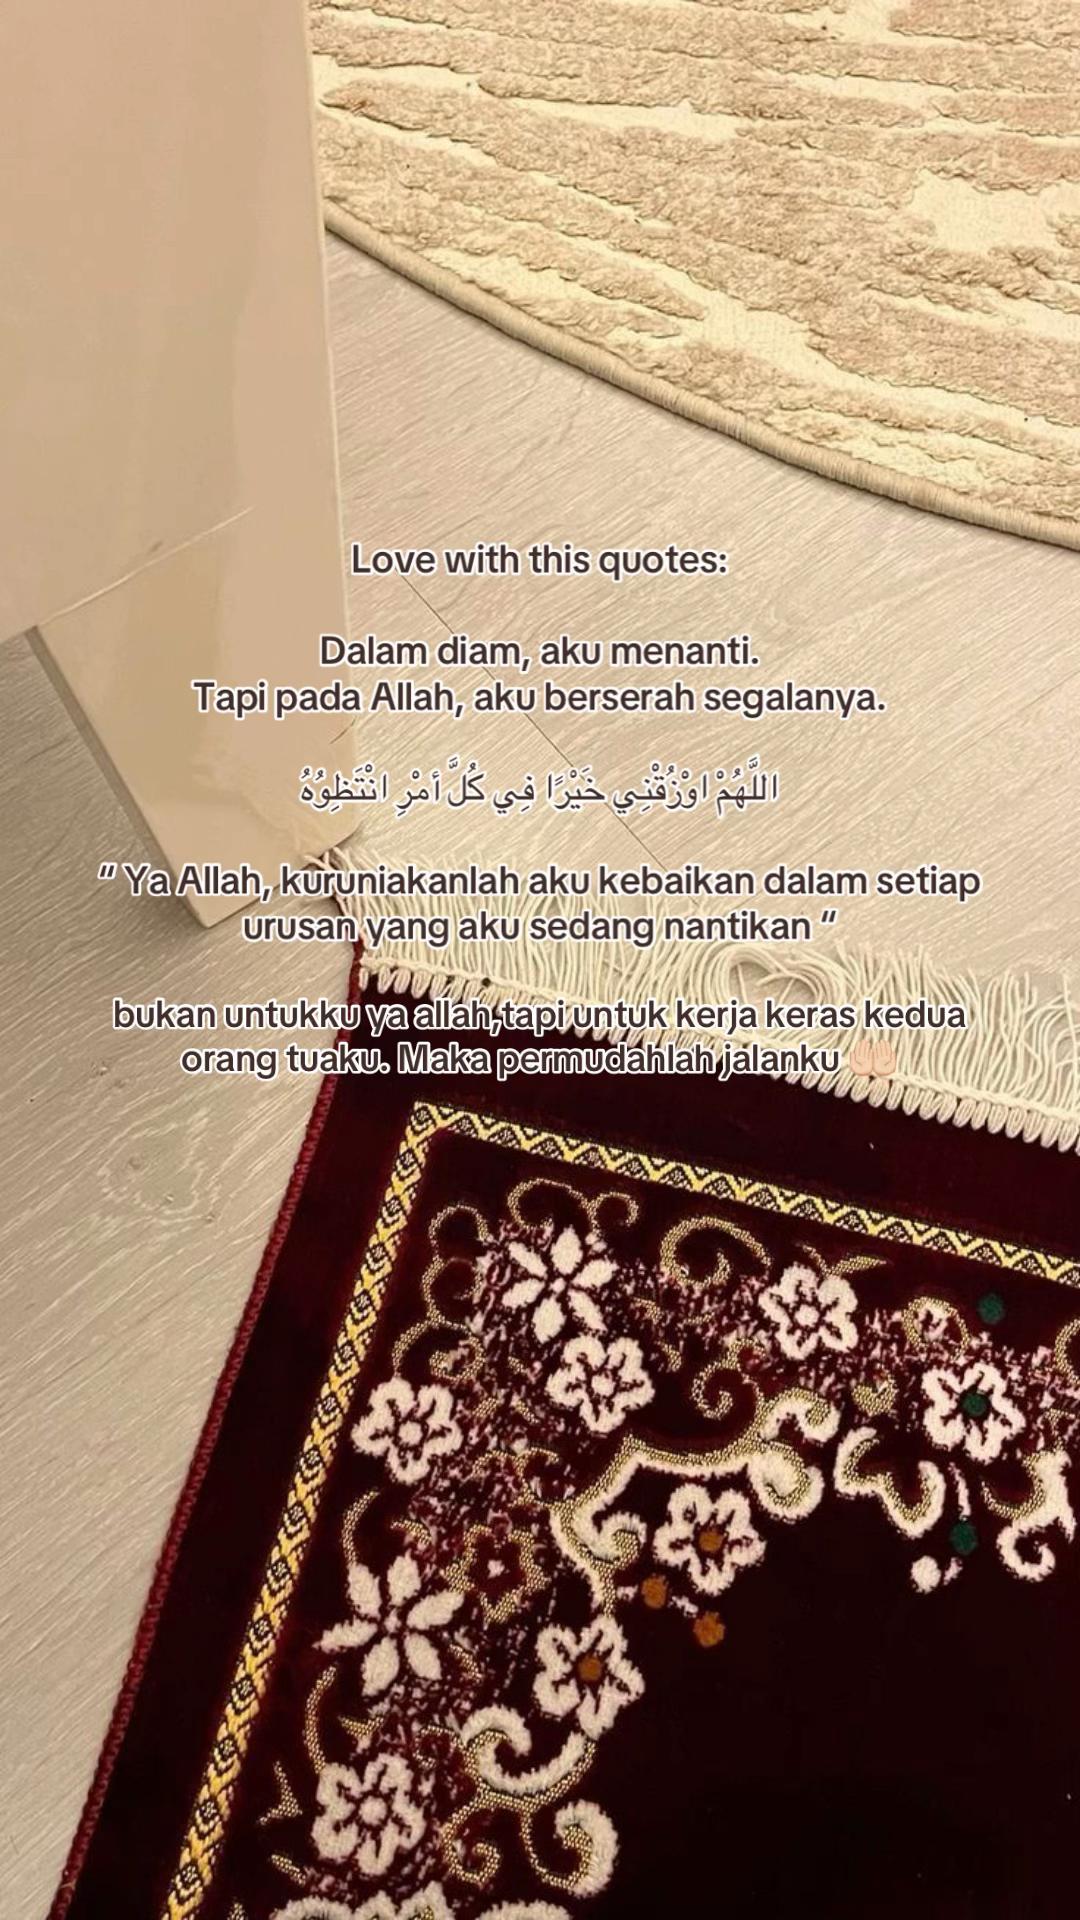 Love with this quotes:
Dalam diam, aku menanti.
Tapi pada Allah, aku berserah segalanya.
اللَّهُمْ اوْزُقْنِي خَيْرًا فِي كُلَّ أمْرِ انْتَظِوُهُ
“ Ya Allah, kuruniakanlah aku kebaikan dalam setiap
urusan yang aku sedang nantikan “
bukan untukku ya allah,tapi untuk kerja keras kedua
orang tuaku. Maka permudahlah jalanku 🤲🏻